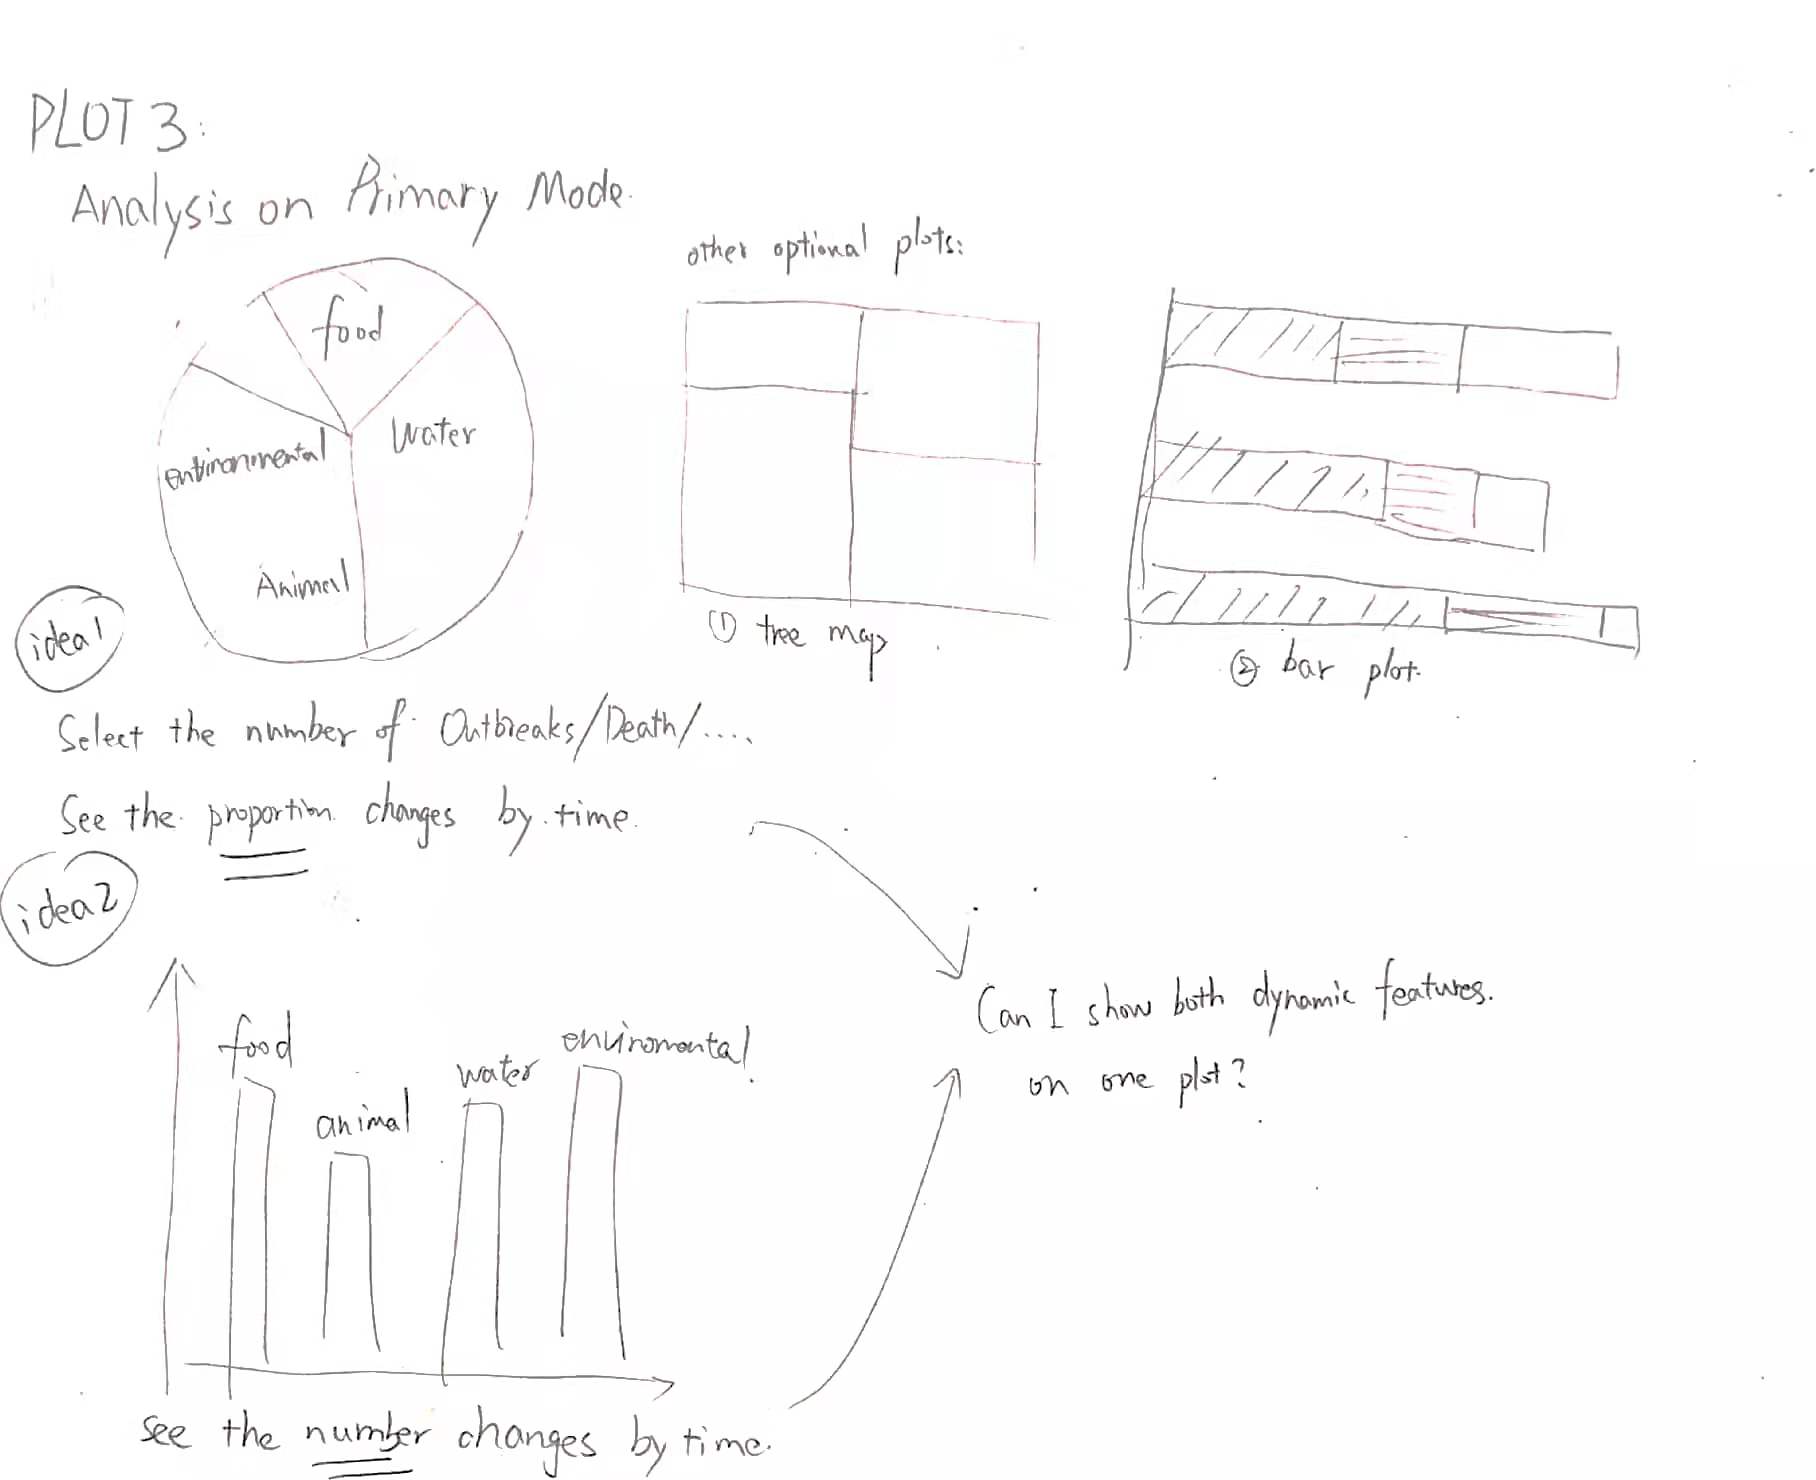 PLOT 3:
Analysis on Primary Mode.
food
Water
environmental
Animal
idea1
other optional plots:
① tree map
② bar plot.
Select the number of Outbreaks/Death/....
See the proportion changes by time.
idea2
food
animal
water
enviromental
see the number changes by time.
Can I show both dynamic features.
on one plot?